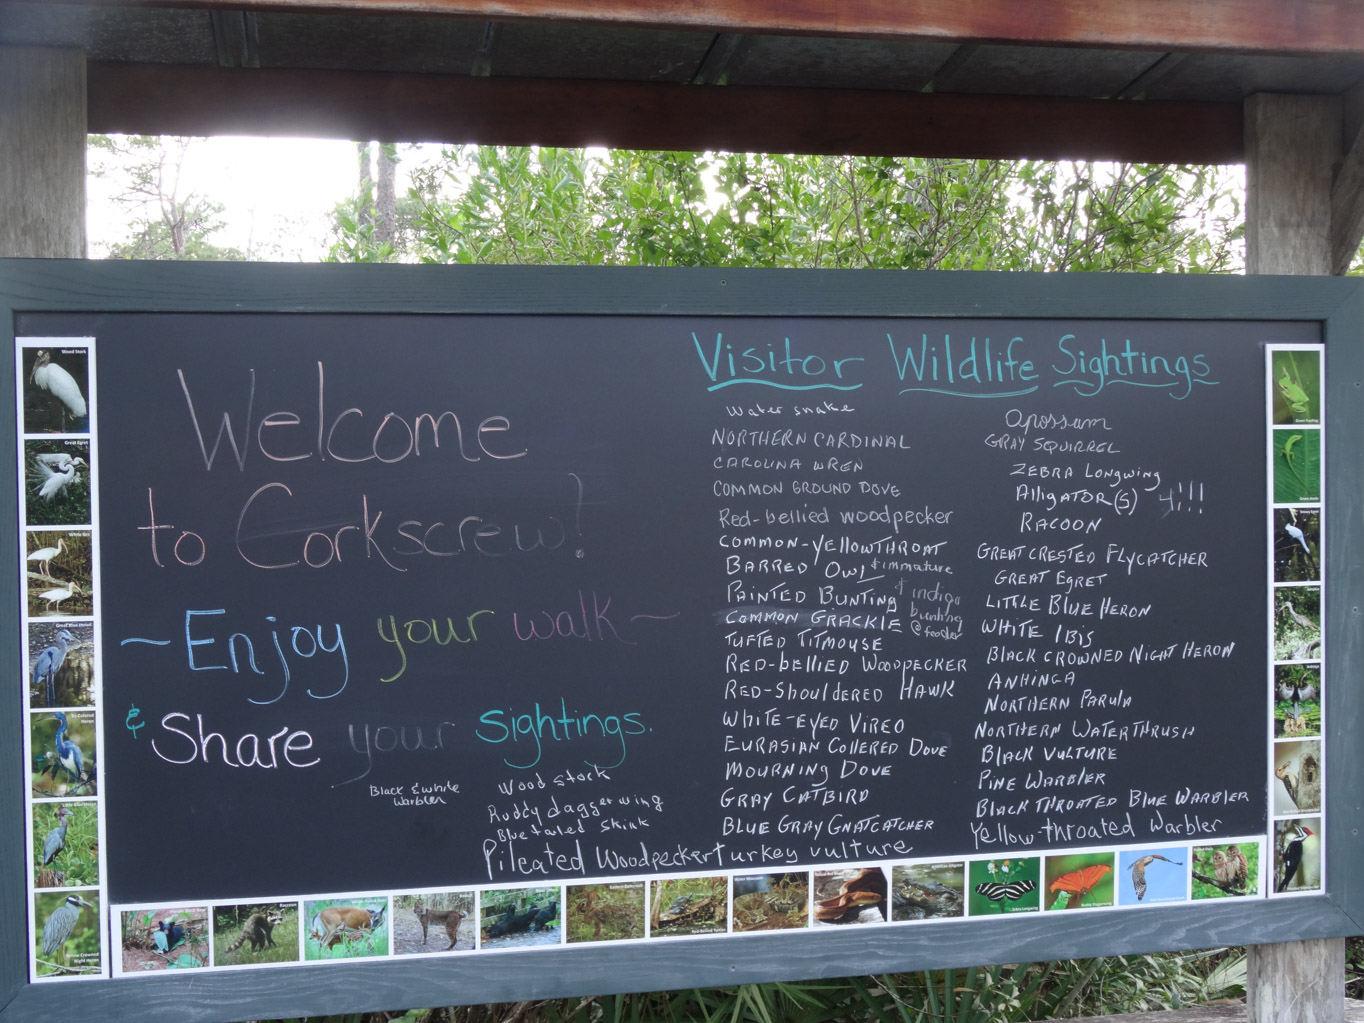 Welcome
to Corkscrew!
~Enjoy your walk~
& Share your sightings.
Black & white
Warbler
Wood stork
Ruddy daggerwing
Blue tailed skink
Pileated Woodpecker
Visitor Wildlife Sightings
Water snake
NORTHERN CARDINAL
CAROLINA WREN
COMMON GROUND DOVE
Red-bellied woodpecker
COMMON-YELLOWTHROAT
BARRED OWL & immature
PAINTED BUNTING & indigo
bunting
@ feeder
COMMON GRACKLE
TUFTED TITMOUSE
RED-bELLIED WOODPECKER
RED-SHOULDERED HAWK
WHITE-EYED VIREO
EURASIAN COLLERED DOVE
MOURNING DOVE
GRAY CATBIRD
BLUE GRAY GNATCATCHER
Turkey vulture
Opossum
GRAY SQUIRREL
ZEBRA LONGWING
AlligATOR(S) 4!!!
RACOON
GREAT CRESTED FLYCATCHER
GREAT EGRET
LITTLE BLUE HERON
WHITE IBIS
BLACK CROWNED NIGHT HERON
ANHINGA
NORTHERN PARULA
NORTHERN WATERTHRUSH
BLACK VULTURE
PINE WARBLER
BLACK THROATED BLUE WARBLER
Yellow-throated Warbler
Wood Stork
Great Egret
White Ibis
Great Blue Heron
Tri-Colored
Heron
Little Blue Heron
Yellow Crowned
Night Heron
Raccoon